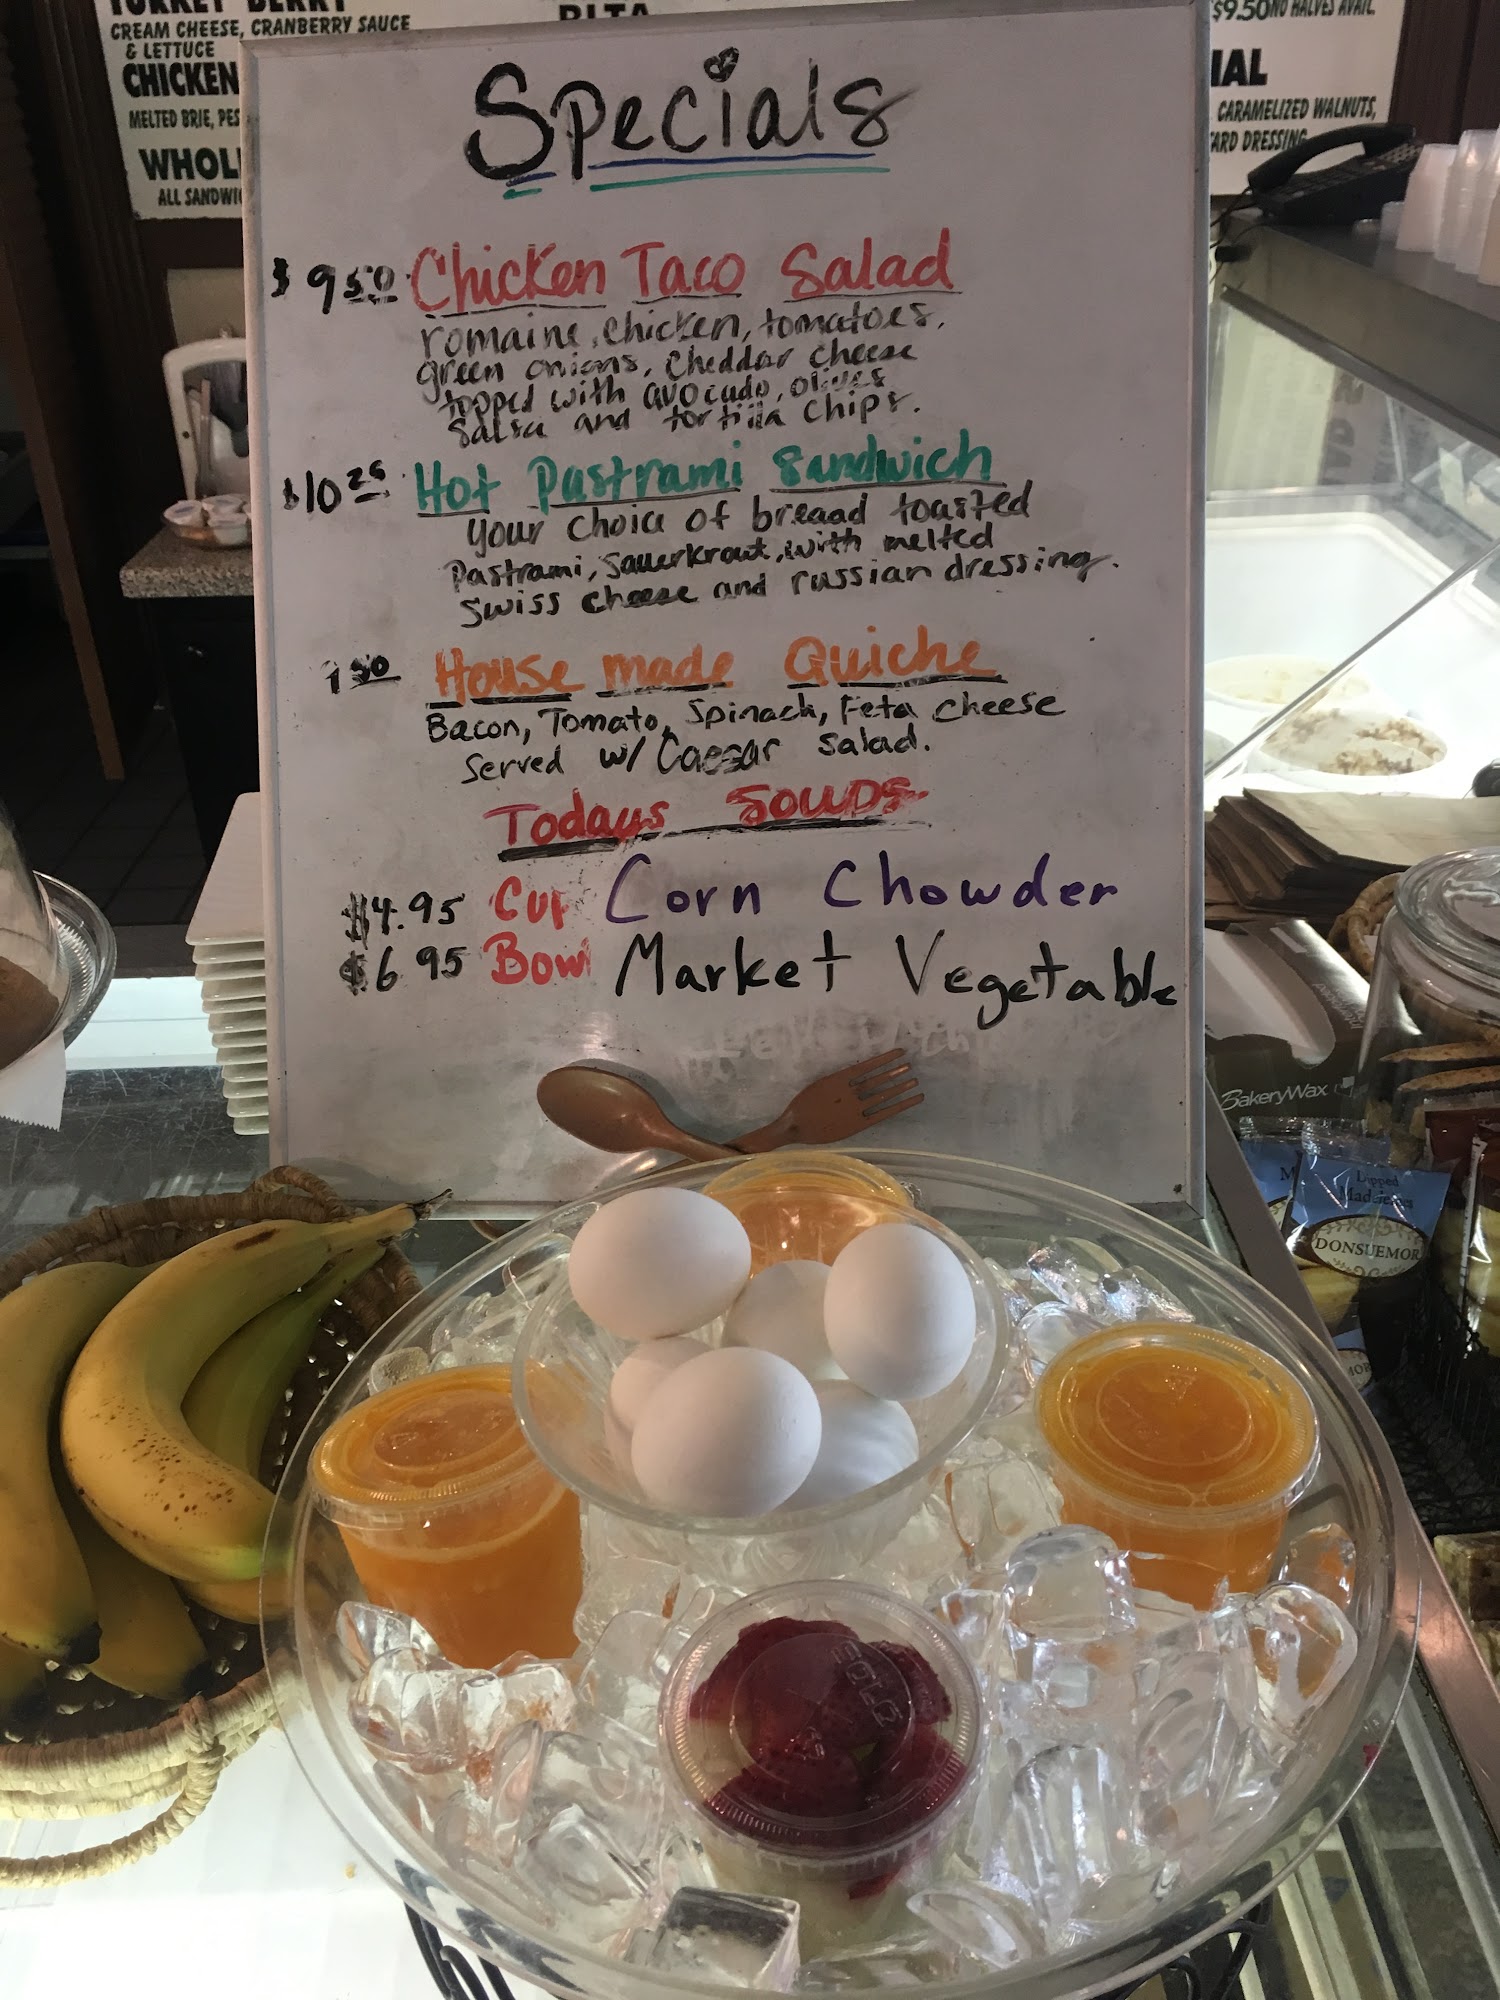 CREAM CHEESE, CRANBERRY SAUCE
& LETTUCE
CHICKEN
MELTED BRIE,
ALL
PITA
$9.50 NO HALVES AVAIL.
CARAMELIZED WALNUTS,
DRESSING
Specials
$9.50 Chicken Taco Salad
romaine, chicken, tomatoes,
green onions, cheddar cheese
topped with avocado, olives
salsa and tortilla chips.
$10.25 Hot Pastrami Sandwich
your choice of breaad toasted
Pastrami, sauerkraut, with melted
swiss cheese and russian dressing.
9.50 House made Quiche
Bacon, Tomato, Spinach, Feta cheese
Served w/ Caesar salad.
Todays SOUPS
$4.95 Cup Corn Chowder
$6.95 Bowl Market Vegetable
BakeryWax
Dipped
Madeleines
DONSUEMOR
SOLO